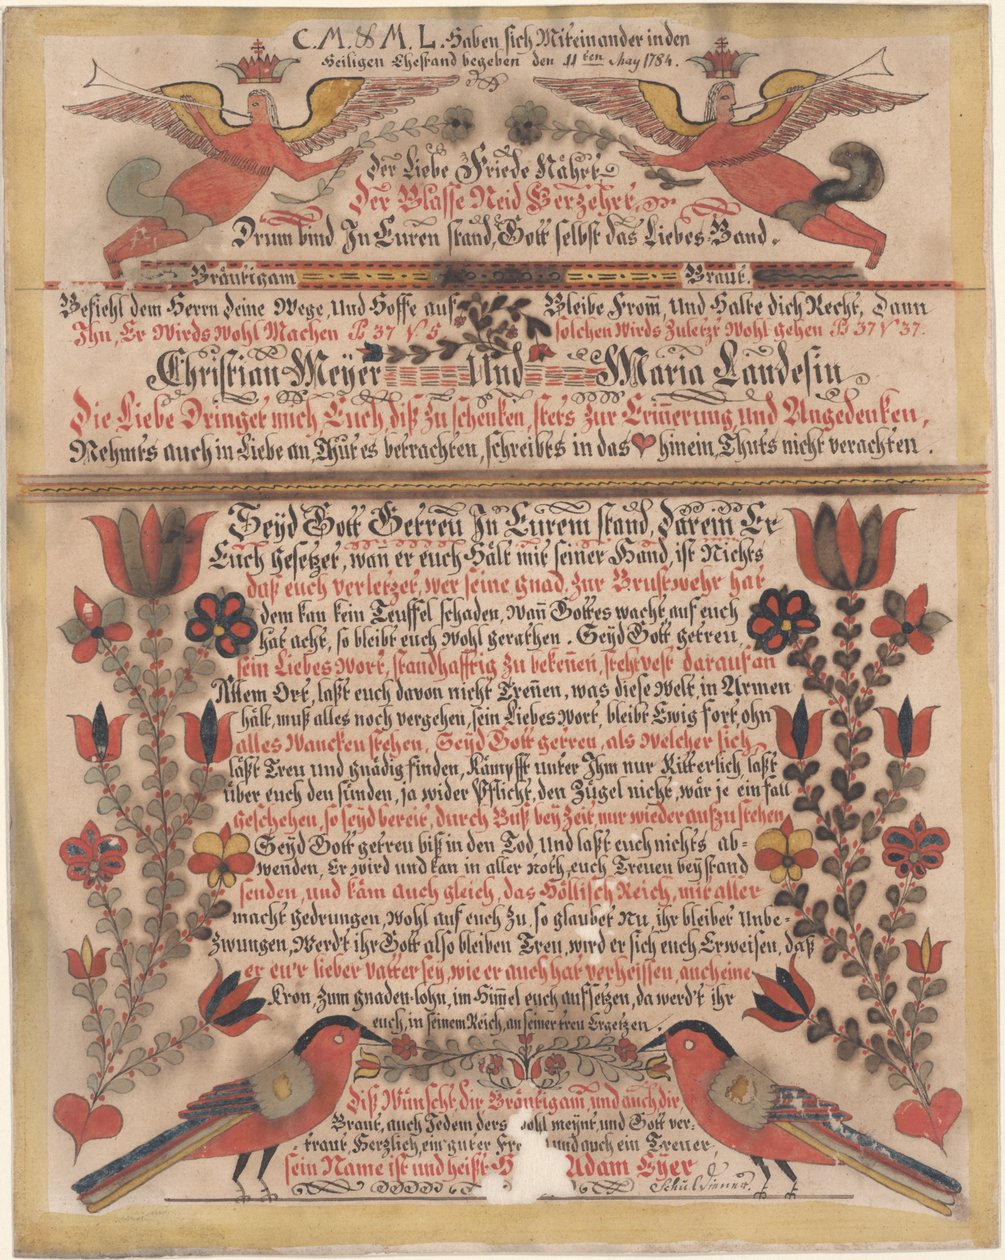 C. M. & M. L. Haben sich Miteinander in den
Heiligen Ehestand begeben den 11ten May 1784.
Der Liebe Friede Nährt
Der Blasse Neid Verzehrt,
Drum bind In Euren stand, Gott selbst das Liebes-Band.
Bräutigam
Braut.
Befiehl dem Herrn deine Wege, Und Hoffe auf
Ihn, Er Wirds Wohl Machen Ps 37 V 5
Bleibe From̅, Und Halte dich Recht, Dann
solchen wirds Zuletzt Wohl gehen Ps 37 V 37.
Christian Meyer Und Maria Landesin
Die Liebe Dringet mich, Euch diß Zu schenken, stets Zur Erin̅erung, und Angedenken,
Nehmts auch in Liebe an, Thut es betrachten, schreibts in das hinein, Thuts nicht verachten.
Seyd Gott Getreu In Eurem stand, Darein Er
Euch Gesetzet, wan̅ er euch Hält mit seiner Hand, ist Nichts
daß euch verletzet, wer seine gnad, Zur Brustwehr hat
dem kan kein Teuffel schaden, Wan̅ Gottes wacht auf euch
hat acht, so bleibt euch Wohl gerathen. Seyd Gott getreu,
sein Liebes Wort, standhafftig Zu beken̅en, steht vest darauf an
Allem Ort, laßt euch davon nicht Tren̅en, was diese Welt, in Armen
hält, muß alles noch vergehen, sein Liebes Wort, bleibt Ewig fort, ohn
alles Wancken stehen, Seyd Gott getreu, als Welcher sich
läßt Treu Und gnädig finden, Kämpfft unter Ihm nur Ritterlich laßt
über euch den sünden, ja wider Pflicht, den Zügel nicht, wär je ein fall
Geschehen, so seyd bereit, durch Buß bey Zeit nur wieder aufzustehen
Seyd Gott getreu biß in den Tod Und laßt euch nichts ab=
wenden, Er wird und kan in aller Noth, euch Treuen beystand
senden, und käm auch gleich, das Höllisch Reich, mit aller
macht gedrungen, Wohl auf euch Zu, so glaubet Nu, ihr bleibet Unbe=
Zwungen, Werd't ihr Gott also bleiben Treu, wird er sich euch, Erweisen, daß
er eu'r lieber vatter sey, wie er auch hat verheissen, auch eine
Kron, Zum gnaden-lohn, im Him̅el euch aufsetzen, da werd't ihr
euch, in seinem Reich, an seiner treu Ergetzen.
Diß Wünscht, dir Bräutigam, und auch dir,
Braut, auch Jedem der's wohl meynt, und Gott ver=
traut Herzlich, ein guter und auch ein Treuer,
sein Name ist und heißt Adam Eyer
Schuldiener.